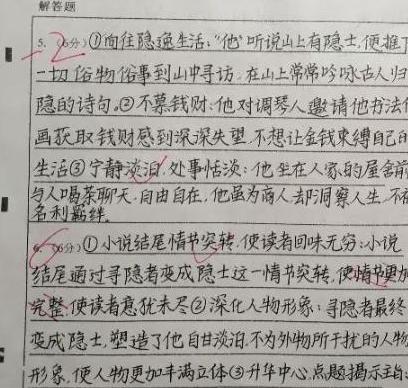 解答题
5.（6分）①向往隐逸生活："他"听说山上有隐士，便推
一切俗物俗事到山中寻访，在山上常常吟咏古人归
隐的诗句。②不慕钱财：他对调琴人邀请他书法
画获取钱财感到深深失望，不想让金钱束缚自己的
生活③宁静淡泊，处事恬淡：他坐在人家的屋舍前
与人喝茶聊天，自由自在，他虽为商人，却洞察人生，不
名利羁绊。
6.（6分）①小说结尾情节突转，使读者回味无穷：小说
结尾通过寻隐者变成隐士这一情节突转，使情节更加
完整，使读者意犹未尽②深化人物形象：寻隐者最终
变成隐士，塑造了他自甘淡泊，不为外物所干扰的人物
形象，使人物更加丰满立体③升华中心，点题揭示主